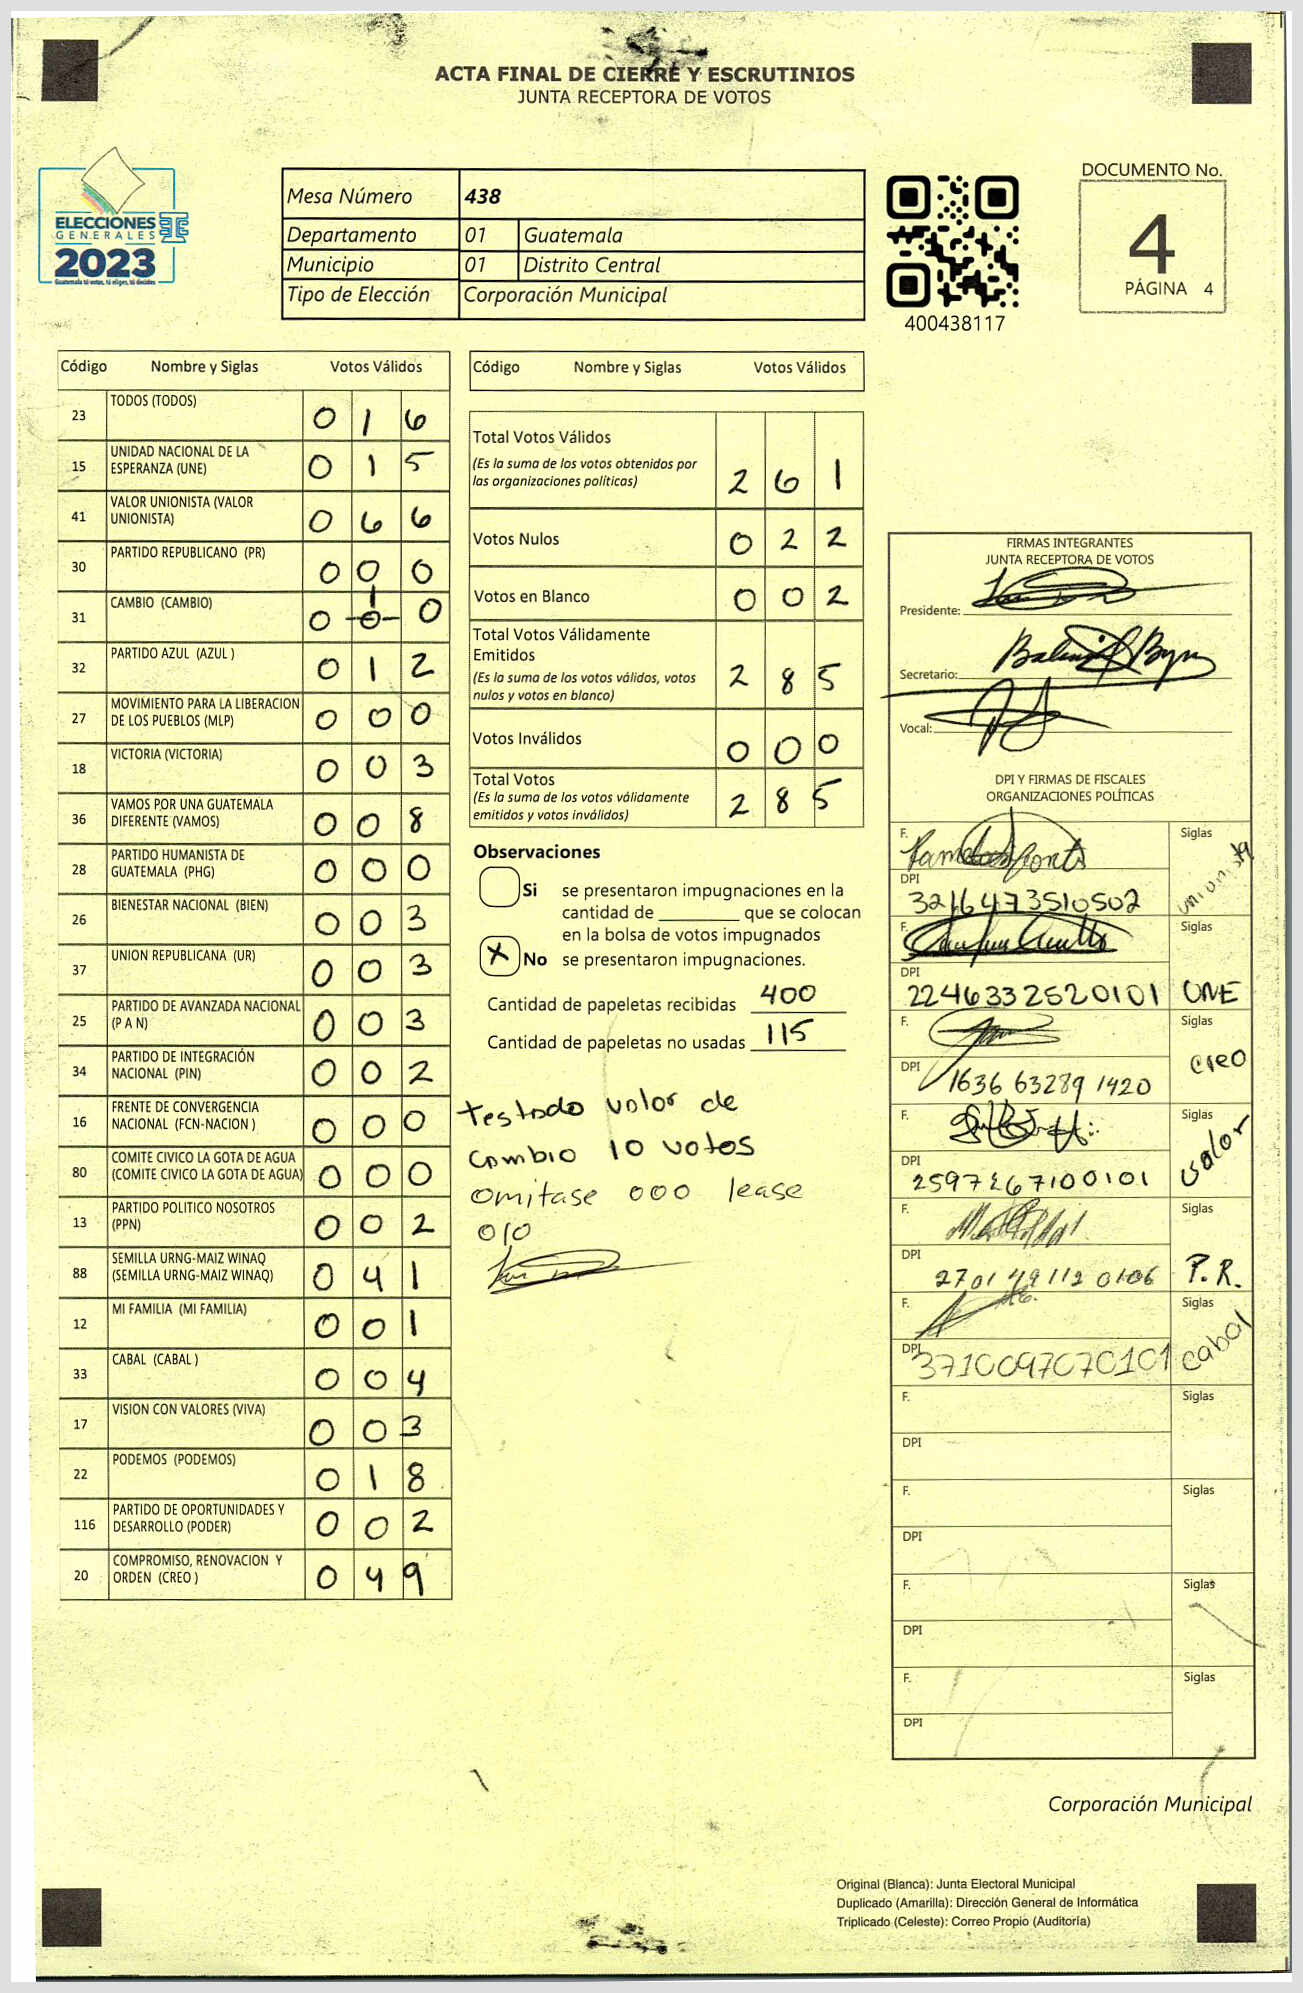 ACTA FINAL DE CIERRE Y ESCRUTINIOS
JUNTA RECEPTORA DE VOTOS
ELECCIONES
GENERALES
2023
Guatemala tú votas, tú eliges, tú decides
Mesa Número 438
Departamento 01 Guatemala
Municipio 01 Distrito Central
Tipo de Elección Corporación Municipal
400438117
DOCUMENTO No.
4
PÁGINA 4
Código Nombre y Siglas Votos Válidos
23 TODOS (TODOS) 0 1 6
15 UNIDAD NACIONAL DE LA
ESPERANZA (UNE) 0 1 5
41 VALOR UNIONISTA (VALOR
UNIONISTA) 0 6 6
30 PARTIDO REPUBLICANO (PR) 0 0 0
31 CAMBIO (CAMBIO) 0 1 0 0
32 PARTIDO AZUL (AZUL ) 0 1 2
27 MOVIMIENTO PARA LA LIBERACION
DE LOS PUEBLOS (MLP) 0 0 0
18 VICTORIA (VICTORIA) 0 0 3
36 VAMOS POR UNA GUATEMALA
DIFERENTE (VAMOS) 0 0 8
28 PARTIDO HUMANISTA DE
GUATEMALA (PHG) 0 0 0
26 BIENESTAR NACIONAL (BIEN) 0 0 3
37 UNION REPUBLICANA (UR) 0 0 3
25 PARTIDO DE AVANZADA NACIONAL
(P A N) 0 0 3
34 PARTIDO DE INTEGRACIÓN
NACIONAL (PIN) 0 0 2
16 FRENTE DE CONVERGENCIA
NACIONAL (FCN-NACION ) 0 0 0
80 COMITE CIVICO LA GOTA DE AGUA
(COMITE CIVICO LA GOTA DE AGUA) 0 0 0
13 PARTIDO POLITICO NOSOTROS
(PPN) 0 0 2
88 SEMILLA URNG-MAIZ WINAQ
(SEMILLA URNG-MAIZ WINAQ) 0 4 1
12 MI FAMILIA (MI FAMILIA) 0 0 1
33 CABAL (CABAL ) 0 0 4
17 VISION CON VALORES (VIVA) 0 0 3
22 PODEMOS (PODEMOS) 0 1 8
116 PARTIDO DE OPORTUNIDADES Y
DESARROLLO (PODER) 0 0 2
20 COMPROMISO, RENOVACION Y
ORDEN (CREO ) 0 4 9
Código Nombre y Siglas Votos Válidos
Total Votos Válidos
(Es la suma de los votos obtenidos por
las organizaciones políticas) 2 6 1
Votos Nulos 0 2 2
Votos en Blanco 0 0 2
Total Votos Válidamente
Emitidos
(Es la suma de los votos válidos, votos
nulos y votos en blanco) 2 8 5
Votos Inválidos 0 0 0
Total Votos
(Es la suma de los votos válidamente
emitidos y votos inválidos) 2 8 5
Observaciones
Si se presentaron impugnaciones en la
cantidad de ________ que se colocan
en la bolsa de votos impugnados
X No se presentaron impugnaciones.
Cantidad de papeletas recibidas 400
Cantidad de papeletas no usadas 115
testado valor de
cambio 10 votos
omitase 000 lease
010
FIRMAS INTEGRANTES
JUNTA RECEPTORA DE VOTOS
Presidente:
Secretario:
Vocal:
DPI Y FIRMAS DE FISCALES
ORGANIZACIONES POLÍTICAS
F. Siglas
DPI 3216473510502 unionista
F. Siglas
DPI 2246332520101 UNE
F. Siglas
DPI 1636 63289 1420 creo
F. Siglas
DPI 2597267100101 valor
F. Siglas
DPI P.R.
F. Siglas
DPI 3710097070101 cabal
F. Siglas
DPI
F. Siglas
DPI
F. Siglas
DPI
F. Siglas
DPI
Corporación Municipal
Original (Blanca): Junta Electoral Municipal
Duplicado (Amarilla): Dirección General de Informática
Triplicado (Celeste): Correo Propio (Auditoría)